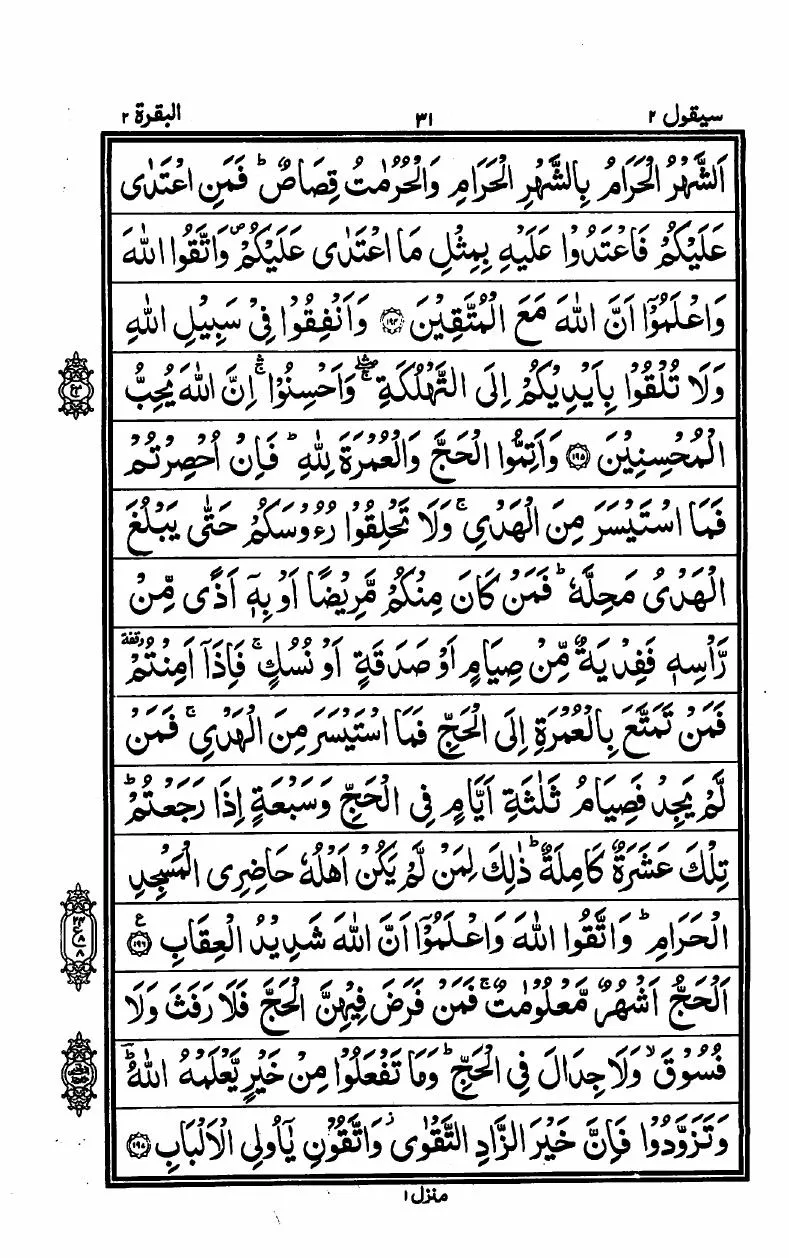 سيقول ٢ ٣١ البقرة ٢
اَلشَّهْرُ الْحَرَامُ بِالشَّهْرِ الْحَرَامِ وَالْحُرُمٰتُ قِصَاصٌ ؕ فَمَنِ اعْتَدٰى
عَلَيْكُمْ فَاعْتَدُوْا عَلَيْهِ بِمِثْلِ مَا اعْتَدٰى عَلَيْكُمْ ۪ وَاتَّقُوا اللّٰهَ
وَاعْلَمُوْۤا اَنَّ اللّٰهَ مَعَ الْمُتَّقِيْنَ ﴿۱۹۴﴾ وَاَنْفِقُوْا فِيْ سَبِيْلِ اللّٰهِ
وَلَا تُلْقُوْا بِاَيْدِيْكُمْ اِلَى التَّهْلُكَةِ ۛۚ وَاَحْسِنُوْا ۛۚ اِنَّ اللّٰهَ يُحِبُّ
الْمُحْسِنِيْنَ ﴿۱۹۵﴾ وَاَتِمُّوا الْحَجَّ وَالْعُمْرَةَ لِلّٰهِ ؕ فَاِنْ اُحْصِرْتُمْ
فَمَا اسْتَيْسَرَ مِنَ الْهَدْيِ ۚ وَلَا تَحْلِقُوْا رُءُوْسَكُمْ حَتّٰى يَبْلُغَ
الْهَدْىُ مَحِلَّهٗ ؕ فَمَنْ كَانَ مِنْكُمْ مَّرِيْضًا اَوْ بِهٖۤ اَذًى مِّنْ
رَّاْسِهٖ فَفِدْيَةٌ مِّنْ صِيَامٍ اَوْ صَدَقَةٍ اَوْ نُسُكٍ ۚ فَاِذَاۤ اَمِنْتُمْ وقفة
فَمَنْ تَمَتَّعَ بِالْعُمْرَةِ اِلَى الْحَجِّ فَمَا اسْتَيْسَرَ مِنَ الْهَدْيِ ۚ فَمَنْ
لَّمْ يَجِدْ فَصِيَامُ ثَلٰثَةِ اَيَّامٍ فِي الْحَجِّ وَسَبْعَةٍ اِذَا رَجَعْتُمْ ؕ
تِلْكَ عَشَرَةٌ كَامِلَةٌ ؕ ذٰلِكَ لِمَنْ لَّمْ يَكُنْ اَهْلُهٗ حَاضِرِى الْمَسْجِدِ
الْحَرَامِ ؕ وَاتَّقُوا اللّٰهَ وَاعْلَمُوْۤا اَنَّ اللّٰهَ شَدِيْدُ الْعِقَابِ ﴿۱۹۶﴾ ع
اَلْحَجُّ اَشْهُرٌ مَّعْلُوْمٰتٌ ۚ فَمَنْ فَرَضَ فِيْهِنَّ الْحَجَّ فَلَا رَفَثَ وَلَا
فُسُوْقَ ۙ وَلَا جِدَالَ فِي الْحَجِّ ؕ وَمَا تَفْعَلُوْا مِنْ خَيْرٍ يَّعْلَمْهُ اللّٰهُ ؕ
وَتَزَوَّدُوْا فَاِنَّ خَيْرَ الزَّادِ التَّقْوٰى ۫ وَاتَّقُوْنِ يٰۤاُولِى الْاَلْبَابِ ﴿۱۹۷﴾
منزل ١